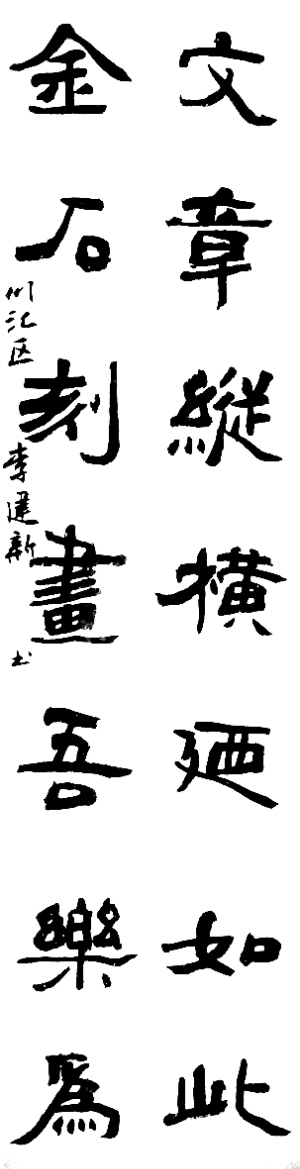 文章縱橫廼如此
金石刻畫吾樂為
川汇区 李建新 书